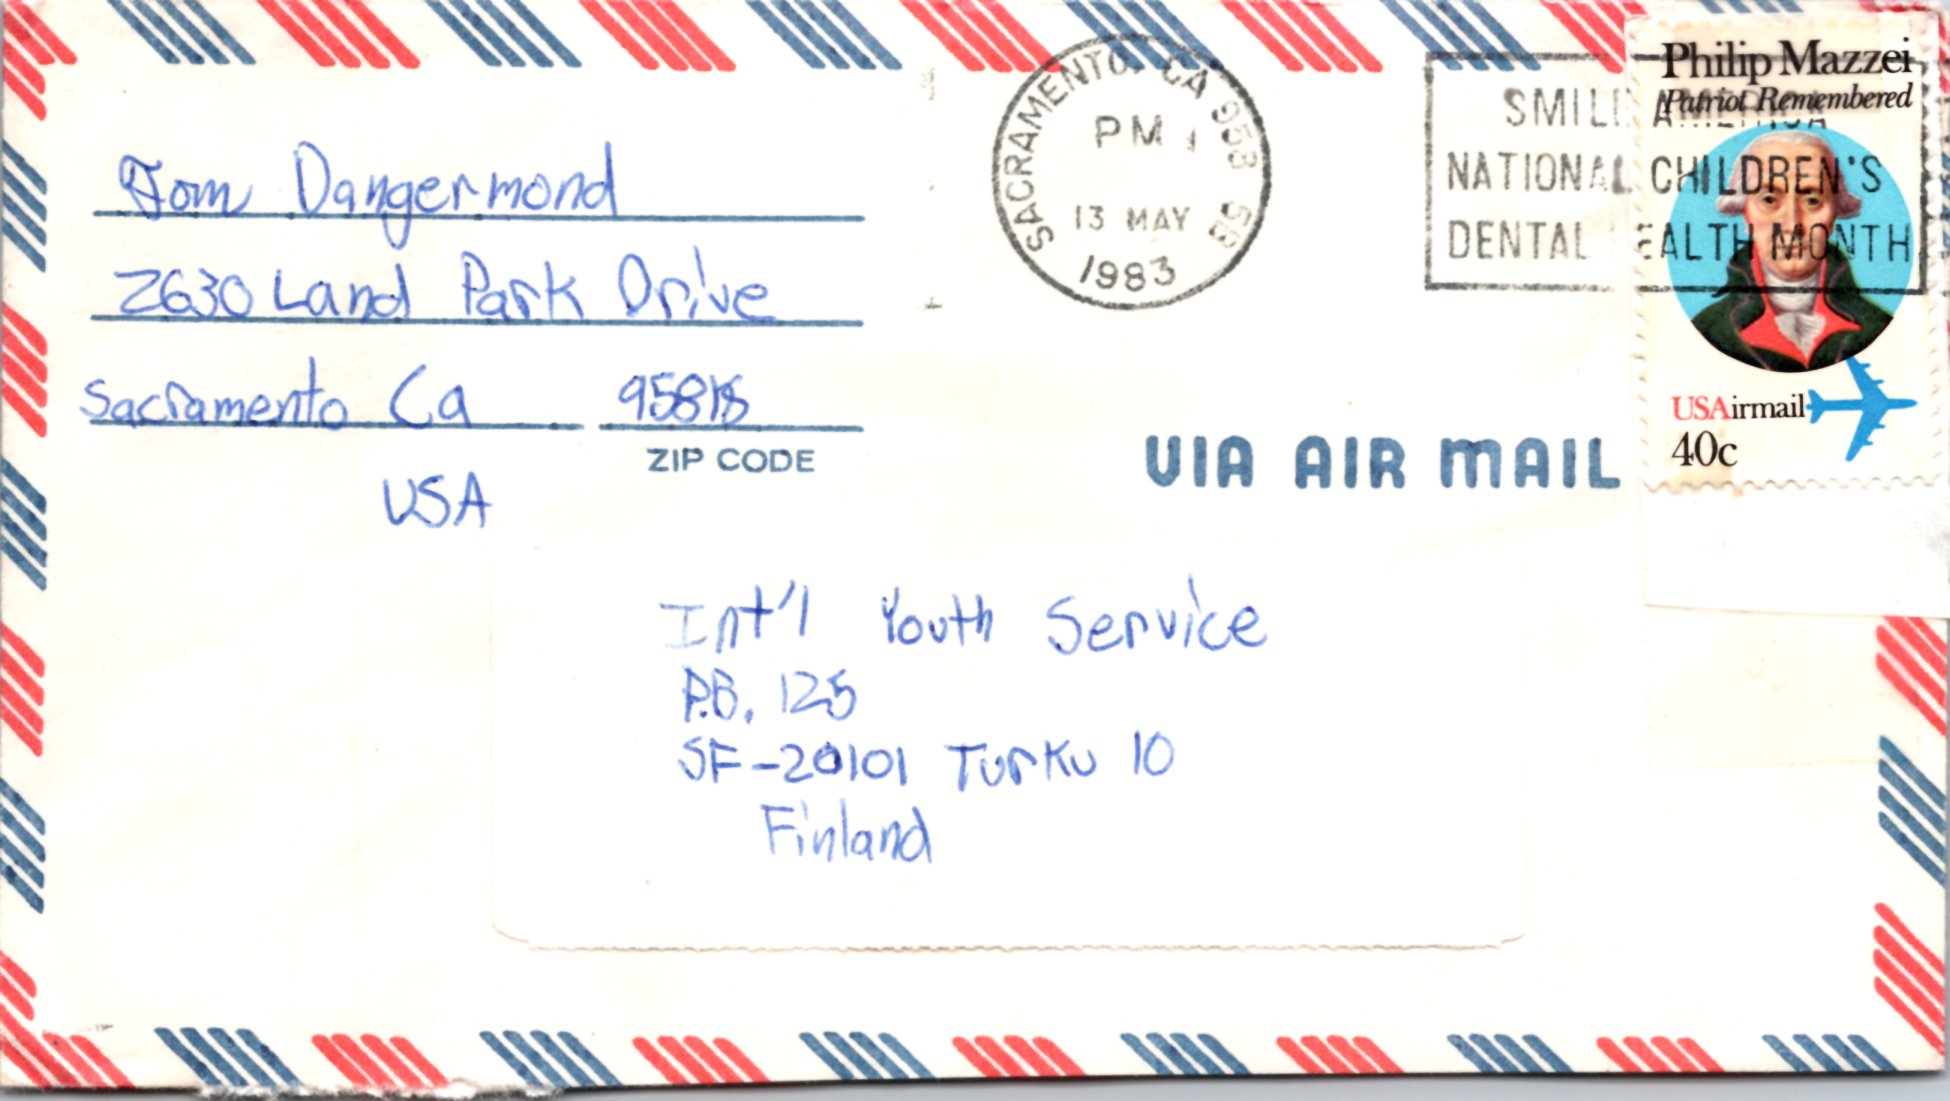 Tom Dangermond
2630 Land Park Drive
Sacramento Ca 95818
ZIP CODE
USA
SACRAMENTO, CA 958 5B
PM
13 MAY
1983
SMILE AMERICA
NATIONAL CHILDREN'S
DENTAL HEALTH MONTH
Philip Mazzei
Patriot Remembered
USAirmail
40c
VIA AIR MAIL
Int'l Youth Service
P.B. 125
SF-20101 Turku 10
Finland